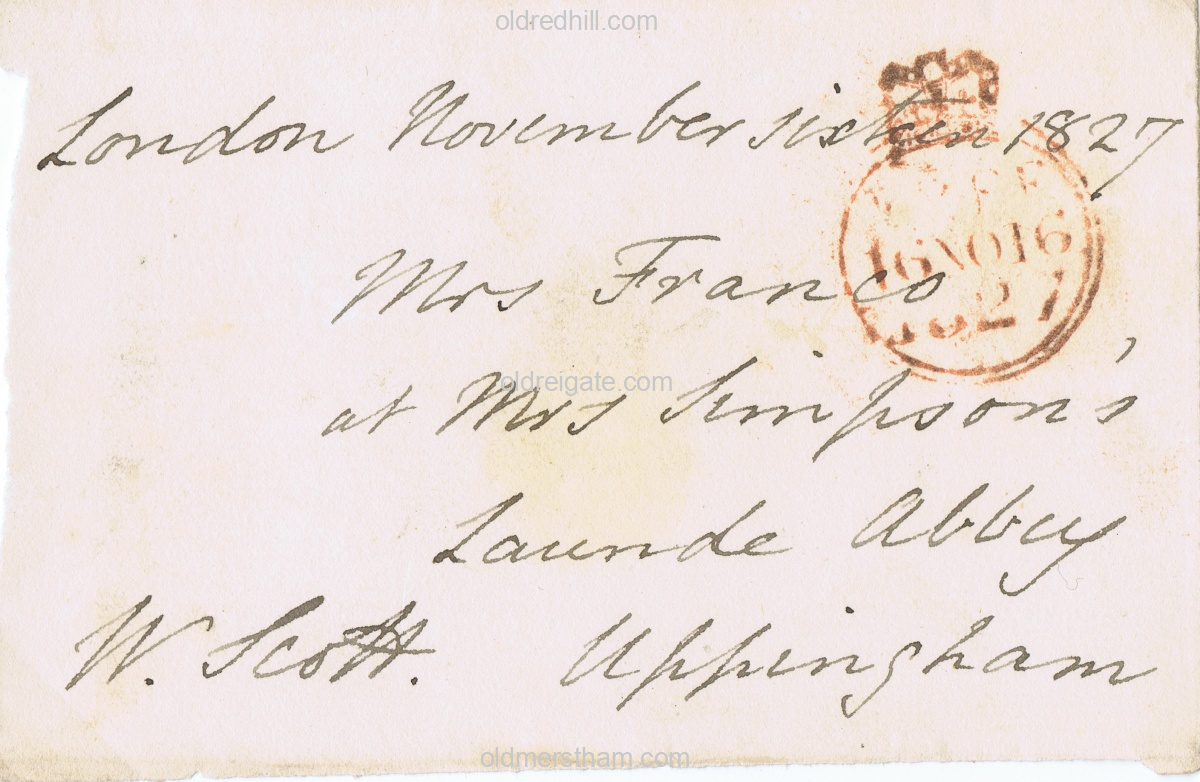 oldredhill.com
London November sixteen 1827
FREE
16 NO 16
1827
Mrs Franco
oldreigate.com
at Mrs Simpson's
Launde Abbey
W. Scott. Uppingham
oldmerstham.com